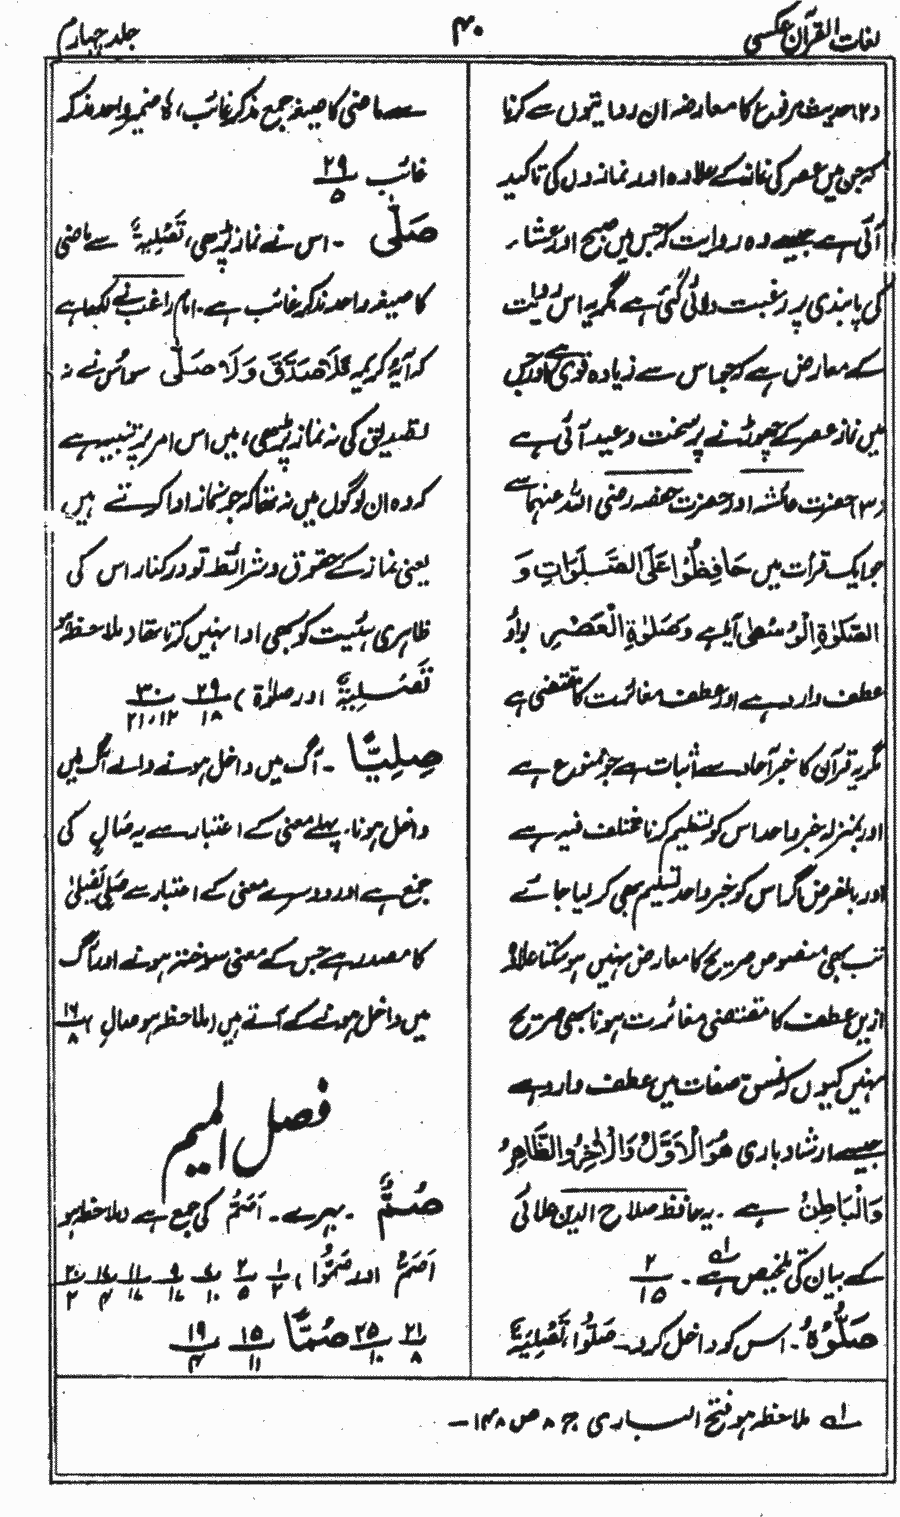 لغات القرآن عکسی
۴۰
جلد چہارم
(۲) حدیث مرفوع کا معارضہ ان روایتوں سے کرنا
کہ جن میں عصر کی نماز کے علاوہ اور نمازوں کی تاکید
آئی ہے جیسے وہ روایت کہ جس میں صبح اور عشاء
کی پابندی پر رغبت دلائی گئی ہے مگر یہ اس روایت
کے معارض ہے کہ جو اس سے زیادہ قوی ہے اور جس
میں نماز عصر کے چھوڑنے پر سخت وعید آئی ہے
(۳) حضرت عائشہ اور حضرت حفصہ رضی اللہ عنہما سے
جو ایک قرأت میں حَافِظُوْا عَلَی الصَّلَوَاتِ وَ
الصَّلٰوةِ الْوُسْطٰی آیا ہے وَصَلٰوةِ الْعَصْرِ بواؤ
عطف وارد ہے اور عطف مغائرت کا مقتضی ہے
مگر یہ قرآن کا خبر آحاد سے اثبات ہے جو ممنوع ہے
اور بمنزلہ خبر واحد اس کو تسلیم کرنا مختلف فیہ ہے
اور بالفرض اگر اس کو خبر واحد تسلیم بھی کر لیا جائے
تب بھی منصوص صریح کا معارض نہیں ہو سکتا علاوہ
ازیں عطف کا مقتضی مغائرت ہونا بھی صریح
نہیں کیوں کہ نسق صفات میں عطف وارد ہے
جیسے ارشاد باری هُوَ الْاَوَّلُ وَالْاٰخِرُ وَالظَّاهِرُ
وَالْبَاطِنُ ہے ۔ یہ حافظ صلاح الدین علائی
کے بیان کی تلخیص ہے لہ ۔ ۲/۱۵
صَلُّوْهُ ۔ اس کو داخل کرو۔ صَلُّوْا تَصْلِيَةٌ
سے ماضی کا صیغہ جمع مذکر غائب، ہٗ ضمیر واحد مذکر
غائب ۲۹/۵
صَلّٰی ۔ اس نے نماز پڑھی، تَصْلِيَةٌ سے ماضی
کا صیغہ واحد مذکر غائب ہے۔ امام راغب نے لکھا ہے
کہ آیۂ کریمہ فَلَا صَدَّقَ وَلَا صَلّٰی سو اس نے نہ
تصدیق کی نہ نماز پڑھی، میں اس امر پر تنبیہ ہے
کہ وہ ان لوگوں میں نہ تھا کہ جو نماز ادا کرتے ہیں
یعنی نماز کے حقوق و شرائط تو درکنار اس کی
ظاہری ہیئیت کو بھی ادا نہیں کرتا تھا (ملاحظہ ہو
تَصْلِيَةٌ اور صلوٰة) ۲۹/۱۸ ۳۰/۲۱،۱۲
صِلِيًّا ۔ آگ میں داخل ہونے والے آگ میں
داخل ہونا۔ پہلے معنی کے اعتبار سے یہ صَالٍ کی
جمع ہے اور دوسرے معنی کے اعتبار سے صَلِیَ یَصْلٰی
کا مصدر ہے جس کے معنی سوختہ ہونے اور آگ
میں داخل ہونے کے آتے ہیں (ملاحظہ ہو صالِ) ۱۶/۸
فصل المیم
صُمٌّ ۔ بہرے ۔ اَصَمُّ کی جمع ہے (ملاحظہ ہو
اَصَمُّ اور صَمُّوْا) ۱/۲ ۲/۵ ۶/۱۰ ۹/۱۷ ۱۱/۱۷ ۱۷/۴ ۲۰/۲
۲۱/۸ ۲۵/۱۰ صُمًّا ۱۵/۱۱ ۱۹/۴
لہ ملاحظہ ہو فتح الباری ج ۸ ص ۱۴۸ ۔